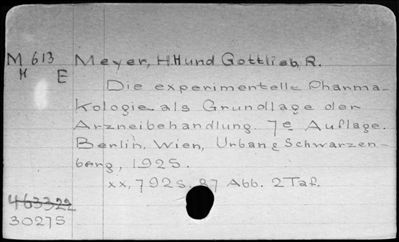 M 613 Meyer, H.H und Gottlieb, R.
H E
Die experimentelle Pharma-
kologie als Grundlage der
Arzneibehandlung. 7e Auflage.
Berlin. Wien, Urban & Schwarzen-
berg, 1925.
xx, 792s. 87 Abb. 2 Taf.
463322
30275